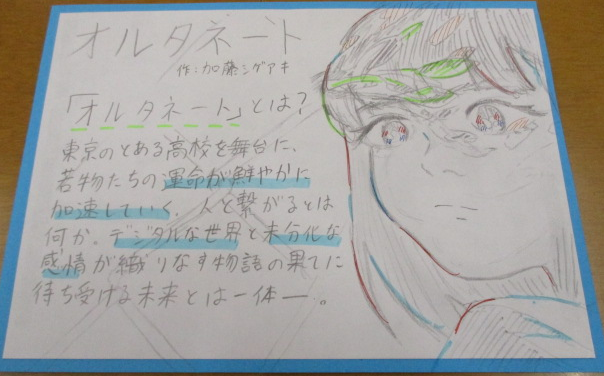 オルタネート
作:加藤シゲアキ
「オルタネート」とは?
東京のとある高校を舞台に、
若物たちの運命が鮮やかに
加速していく。人と繋がるとは
何か。デジタルな世界と未分化な
感情が織りなす物語の果てに
待ち受ける未来とは一体ー。